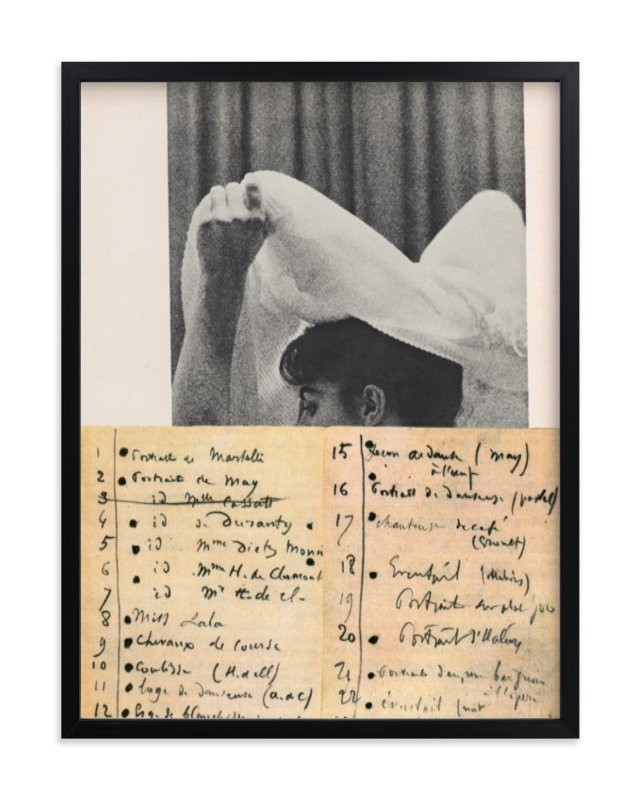 1 Portrait de Martelli
2 Portrait de May
3 id Mlle Cassatt
4 id de Duranty
5 id Mme Dietz Monin
6 id Mme H. de Clermont
7 id Mr H. de Cl-
8 Miss Lala
9 Chevaux de course
10 Coulisse (H. de Cl)
11 Loge de danseuse (a. de C)
12 de
15 Leçon de danse (May)
à l'œuf
16 Portrait de danseuse (pastel)
17 chanteuse de café
18 Eventail
19 Portraits
20 Portrait d'Halévy
21
22 éventail